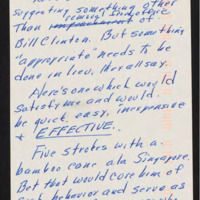 suggesting something other
than
Bill Clinton. But something
"appropriate" needs to be
done in lieu, literally say.
Here's one which would
satisfy me and would
be quick, easy, inexpensive
& EFFECTIVE.
Five strokes with a
bamboo cane ala Singapore.
But that would cure him of
such behavior and serve as